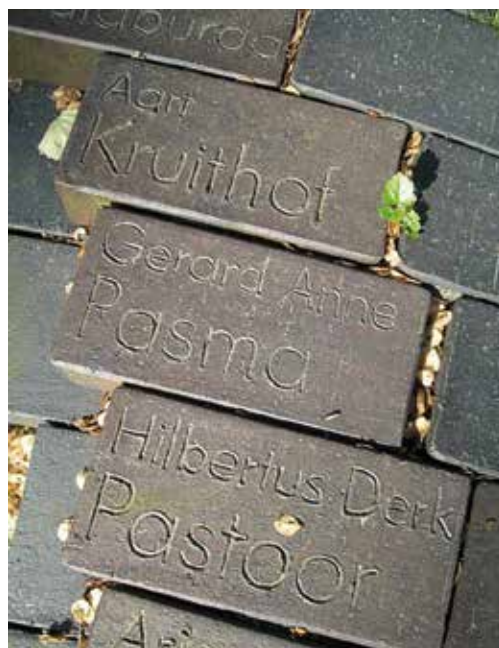 Aart
Kruithof
Gerard Anne
Pasma
Hilbertus Derk
Pastoor